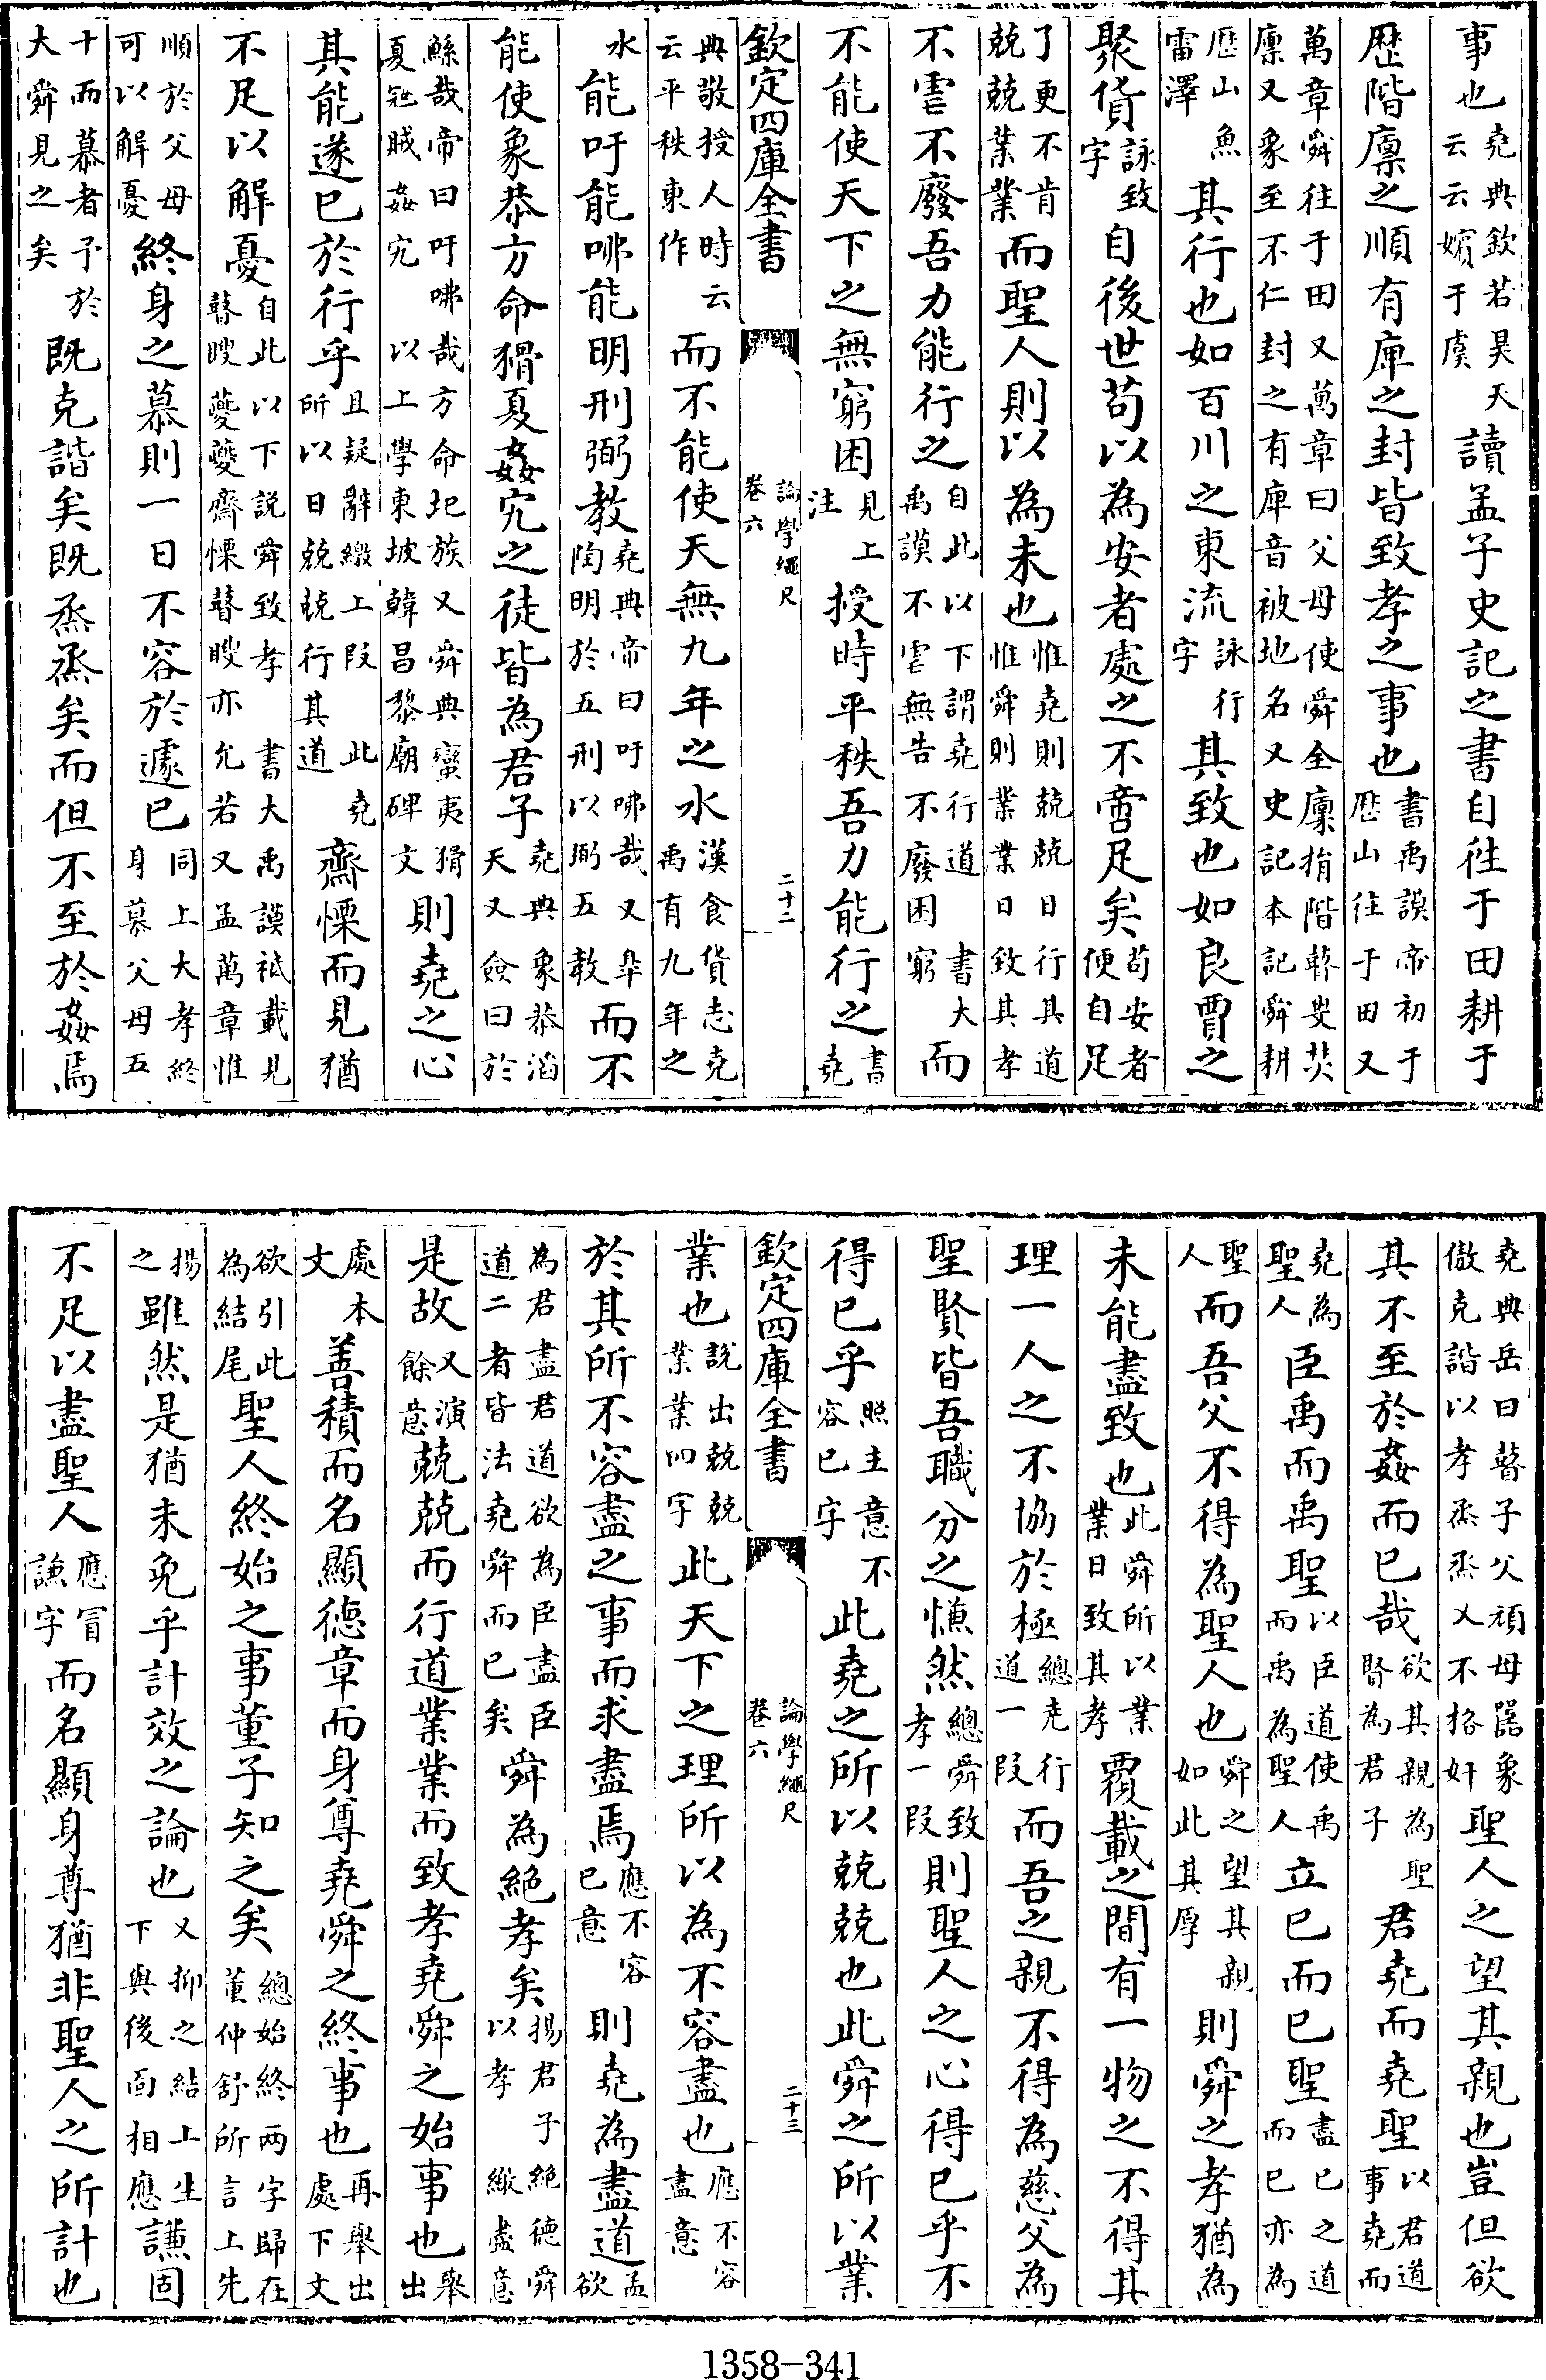 事也堯典欽若昊天云云嬪于虞讀孟子史記之書自徃于田耕于
歴階廪之順有庳之封皆致孝之事也書禹謨帝初于歴山往于田又
萬章舜往于田又萬章曰父母使舜全廪捐階瞽叟焚廪又象至不仁封之有庳音被地名又史記本記舜耕
歴山魚雷澤其行也如百川之東流詠行字其致也如良賈之
聚貨詠致字自後世苟以為安者處之不啻足矣苟安者便自足
了更不肯兢兢業業而聖人則以為未也惟堯則兢兢日行其道惟舜則業業日致其孝
不虐不廢吾力能行之自此以下謂堯行道書大禹謨不虐無告不廢困窮而
不能使天下之無窮困見上注授時平秩吾力能行之書堯
欽定四庫全書 論學繩尺 卷六 二十二
典敬授人時云云平秩東作而不能使天無九年之水漢食貨志堯禹有九年之
水能吁能咈能明刑弼教堯典帝曰吁咈哉又臯陶明於五刑以弼五教而不
能使象恭方命猾夏姦宄之徒皆為君子堯典象恭滔天又僉曰於
鯀哉帝曰吁咈哉方命圯族又舜典蠻夷猾夏冦賊姦宄以上學東坡韓昌黎廟碑文則堯之心
其能遂已於行乎且疑辭繳上段此堯所以日兢兢行其道齋慄而見猶
不足以解憂自此以下説舜致孝書大禹謨祗載見瞽瞍夔夔齋慄瞽瞍亦允若又孟萬章惟
順於父母可以解憂終身之慕則一日不容於遽已同上大孝終身慕父母五
十而慕者予於大舜見之矣既克諧矣既烝烝矣而但不至於姦焉
堯典岳曰瞽子父頑母嚚象傲克諧以孝烝烝乂不格奸聖人之望其親也豈但欲
其不至於姦而已哉欲其親為聖賢為君子君堯而堯聖以君道事堯而
堯為聖人臣禹而禹聖以臣道使禹而禹為聖人立已而已聖盡已之道而已亦為
聖人而吾父不得為聖人也舜之望其親如此其厚則舜之孝猶為
未能盡致也此舜所以業業日致其孝覆載之間有一物之不得其
理一人之不協於極總堯行道一段而吾之親不得為慈父為
聖賢皆吾職分之慊然總舜致孝一段則聖人之心得已乎不
得已乎照主意不容已字此堯之所以兢兢也此舜之所以業
欽定四庫全書 論學繩尺 卷六 二十三
業也說出兢兢業業四字此天下之理所以為不容盡也應不容盡意
於其所不容盡之事而求盡焉應不容已意則堯為盡道孟欲
為君盡君道欲為臣盡臣道二者皆法堯舜而已矣舜為絶孝矣揚君子絶德舜以孝繳盡意
是故又演餘意兢兢而行道業業而致孝堯舜之始事也舉出
處本文善積而名顯德章而身尊堯舜之終事也再舉出處下文
欲引此為結尾聖人終始之事董子知之矣總始終兩字歸在董仲舒所言上先
揚之雖然是猶未免乎計效之論也又抑之結上生下與後面相應謙固
不足以盡聖人應冒謙字而名顯身尊猶非聖人之所計也
1358-341